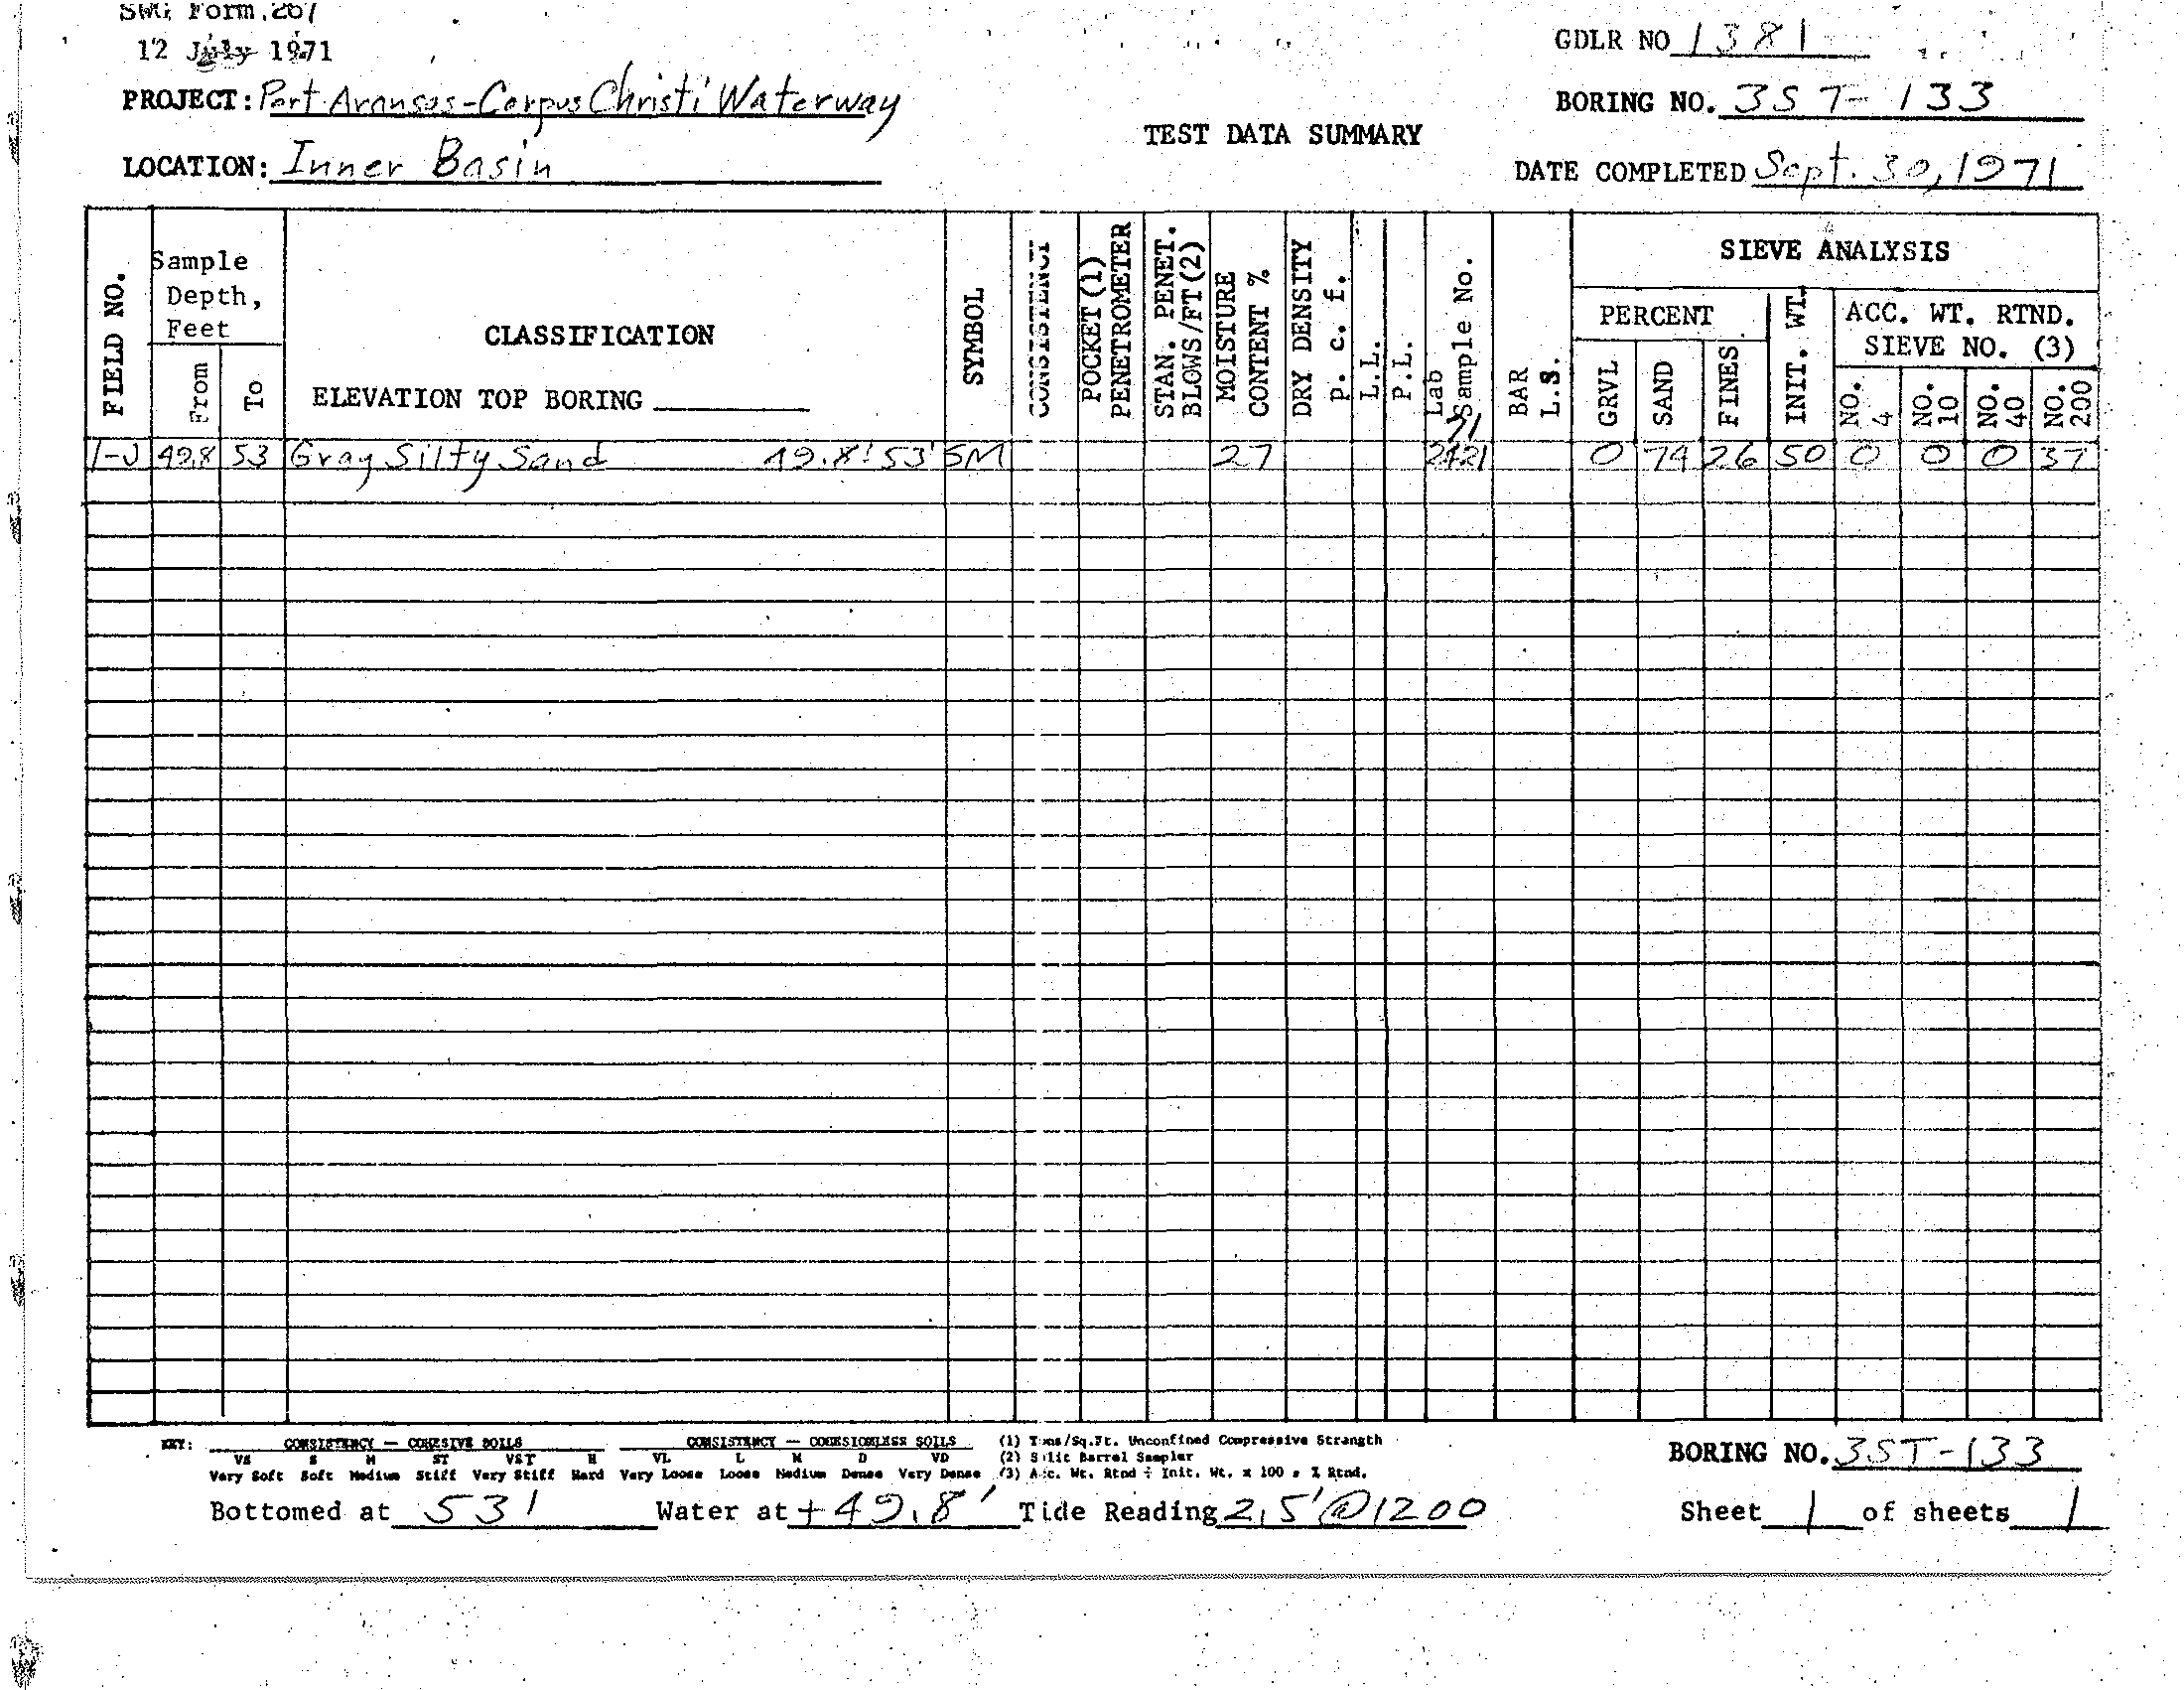 SWG Form 267
12 July 1971
GDLR NO 1381
PROJECT: Port Aransas-Corpus Christi Waterway
BORING NO. 3ST-133
TEST DATA SUMMARY
LOCATION: Inner Basin
DATE COMPLETED Sept. 30, 1971
FIELD NO.
Sample Depth, Feet
From
To
CLASSIFICATION
ELEVATION TOP BORING
SYMBOL
CONSISTENCY
POCKET (1) PENETROMETER
STAN. PENET. BLOWS/FT (2)
MOISTURE CONTENT %
DRY DENSITY p. c. f.
L.L.
P.L.
Lab Sample No.
BAR L.S.
SIEVE ANALYSIS
PERCENT
GRVL
SAND
FINES
INIT. WT.
ACC. WT. RTND. SIEVE NO. (3)
NO. 4
NO. 10
NO. 40
NO. 200
71
1-J 49.8 53 Gray Silty Sand 49.8' 53' SM 27 2421 0 74 26 50 0 0 0 37
KEY: CONSISTENCY — COHESIVE SOILS CONSISTENCY — COHESIONLESS SOILS (1) Tons/Sq.Ft. Unconfined Compressive Strength
VS S M ST VST H VL L M D VD (2) Split Barrel Sampler
Very Soft Soft Medium Stiff Very Stiff Hard Very Loose Loose Medium Dense Very Dense (3) Acc. Wt. Rtnd ÷ Init. Wt. x 100 = % Rtnd.
BORING NO. 3ST-133
Bottomed at 53' Water at +49.8' Tide Reading 2.5' @ 1200 Sheet 1 of sheets 1